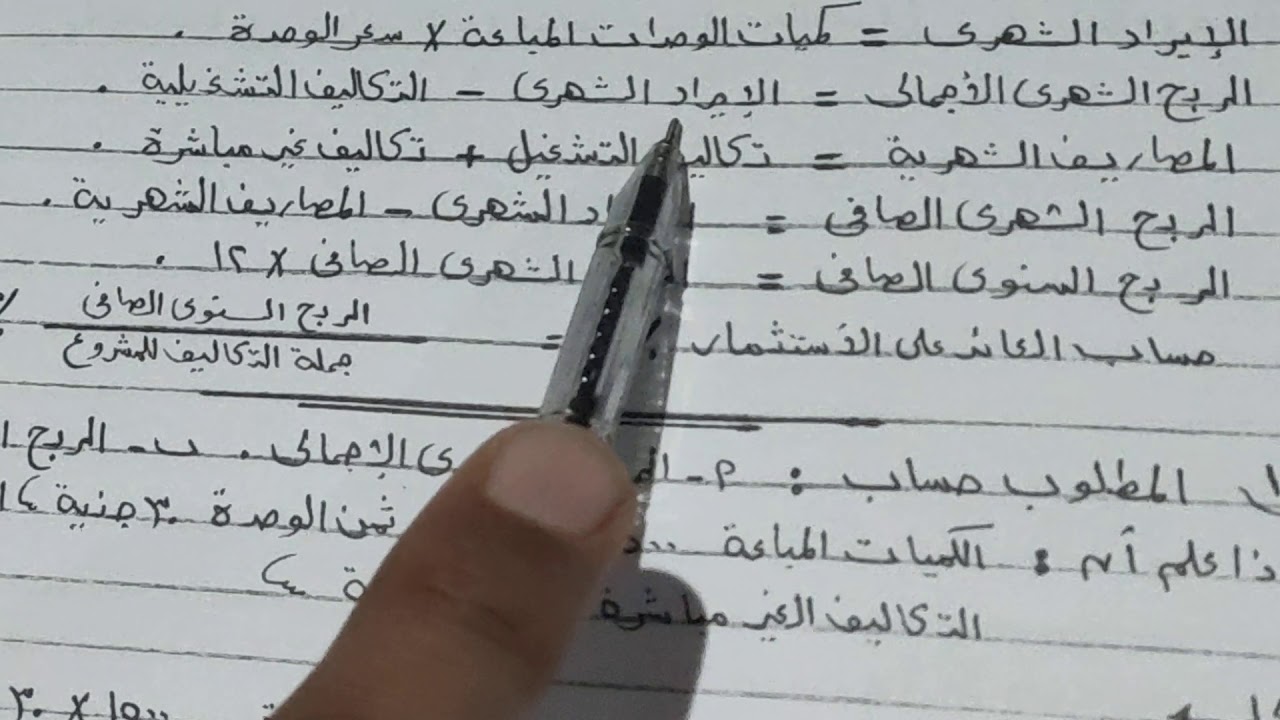 الإيراد الشهرى = كميات الوحدات المباعة × سعر الوحدة .
الربح الشهرى الأجمالى = الإيراد الشهرى - التكاليف التشغيلية .
المصاريف الشهرية = تكاليف التشغيل + تكاليف غير مباشرة .
الربح الشهرى الصافى = اد الشهرى - المصاريف الشهرية .
الربح السنوى الصافى = الشهرى الصافى × ١٢ .
حساب العائد على الأستثمار = الربح السنوى الصافى
جملة التكاليف للمشروع
المطلوب حساب : ٢ - ى الإجمالى . ب - الربح
ذا علم أن : الكميات المباعة ثمن الوحدة ٣٠ جنية
التكاليف الغير مباشرة
١٥٠٠ × ٣٠